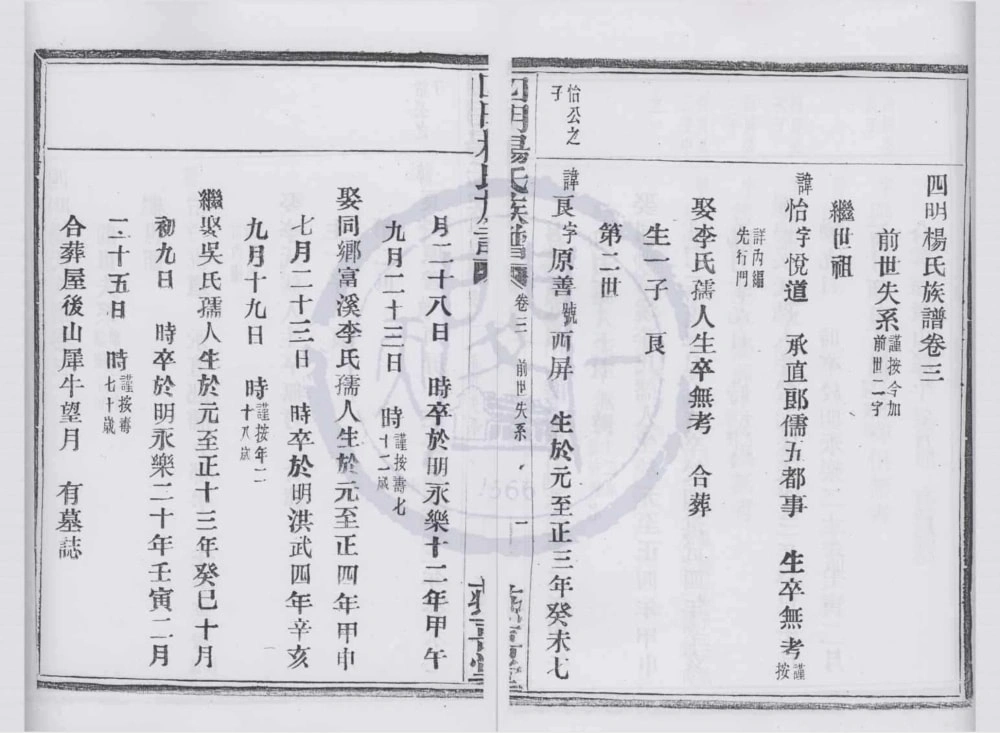 四明楊氏族譜卷三
前世失系謹按今加前世二字
繼世祖
諱怡字悅道 承直郎儒五都事 生卒無考謹按
詳內編先行門
娶李氏孺人生卒無考 合葬
生一子 良
第二世
怡公之子
諱良字原善號西屏 生於元至正三年癸未七
四明楊氏族譜 卷三 前世失系 一
月二十八日 時卒於明永樂十二年甲午
九月二十三日 時謹按壽七十二歲
娶同鄉富溪李氏孺人生於元至正四年甲申
七月二十三日 時卒於明洪武四年辛亥
九月十九日 時謹按年二十八歲
繼娶吳氏孺人生於元至正十三年癸巳十月
初九日 時卒於明永樂二十年壬寅二月
二十五日 時謹按壽七十歲
合葬屋後山犀牛望月 有墓誌
1566